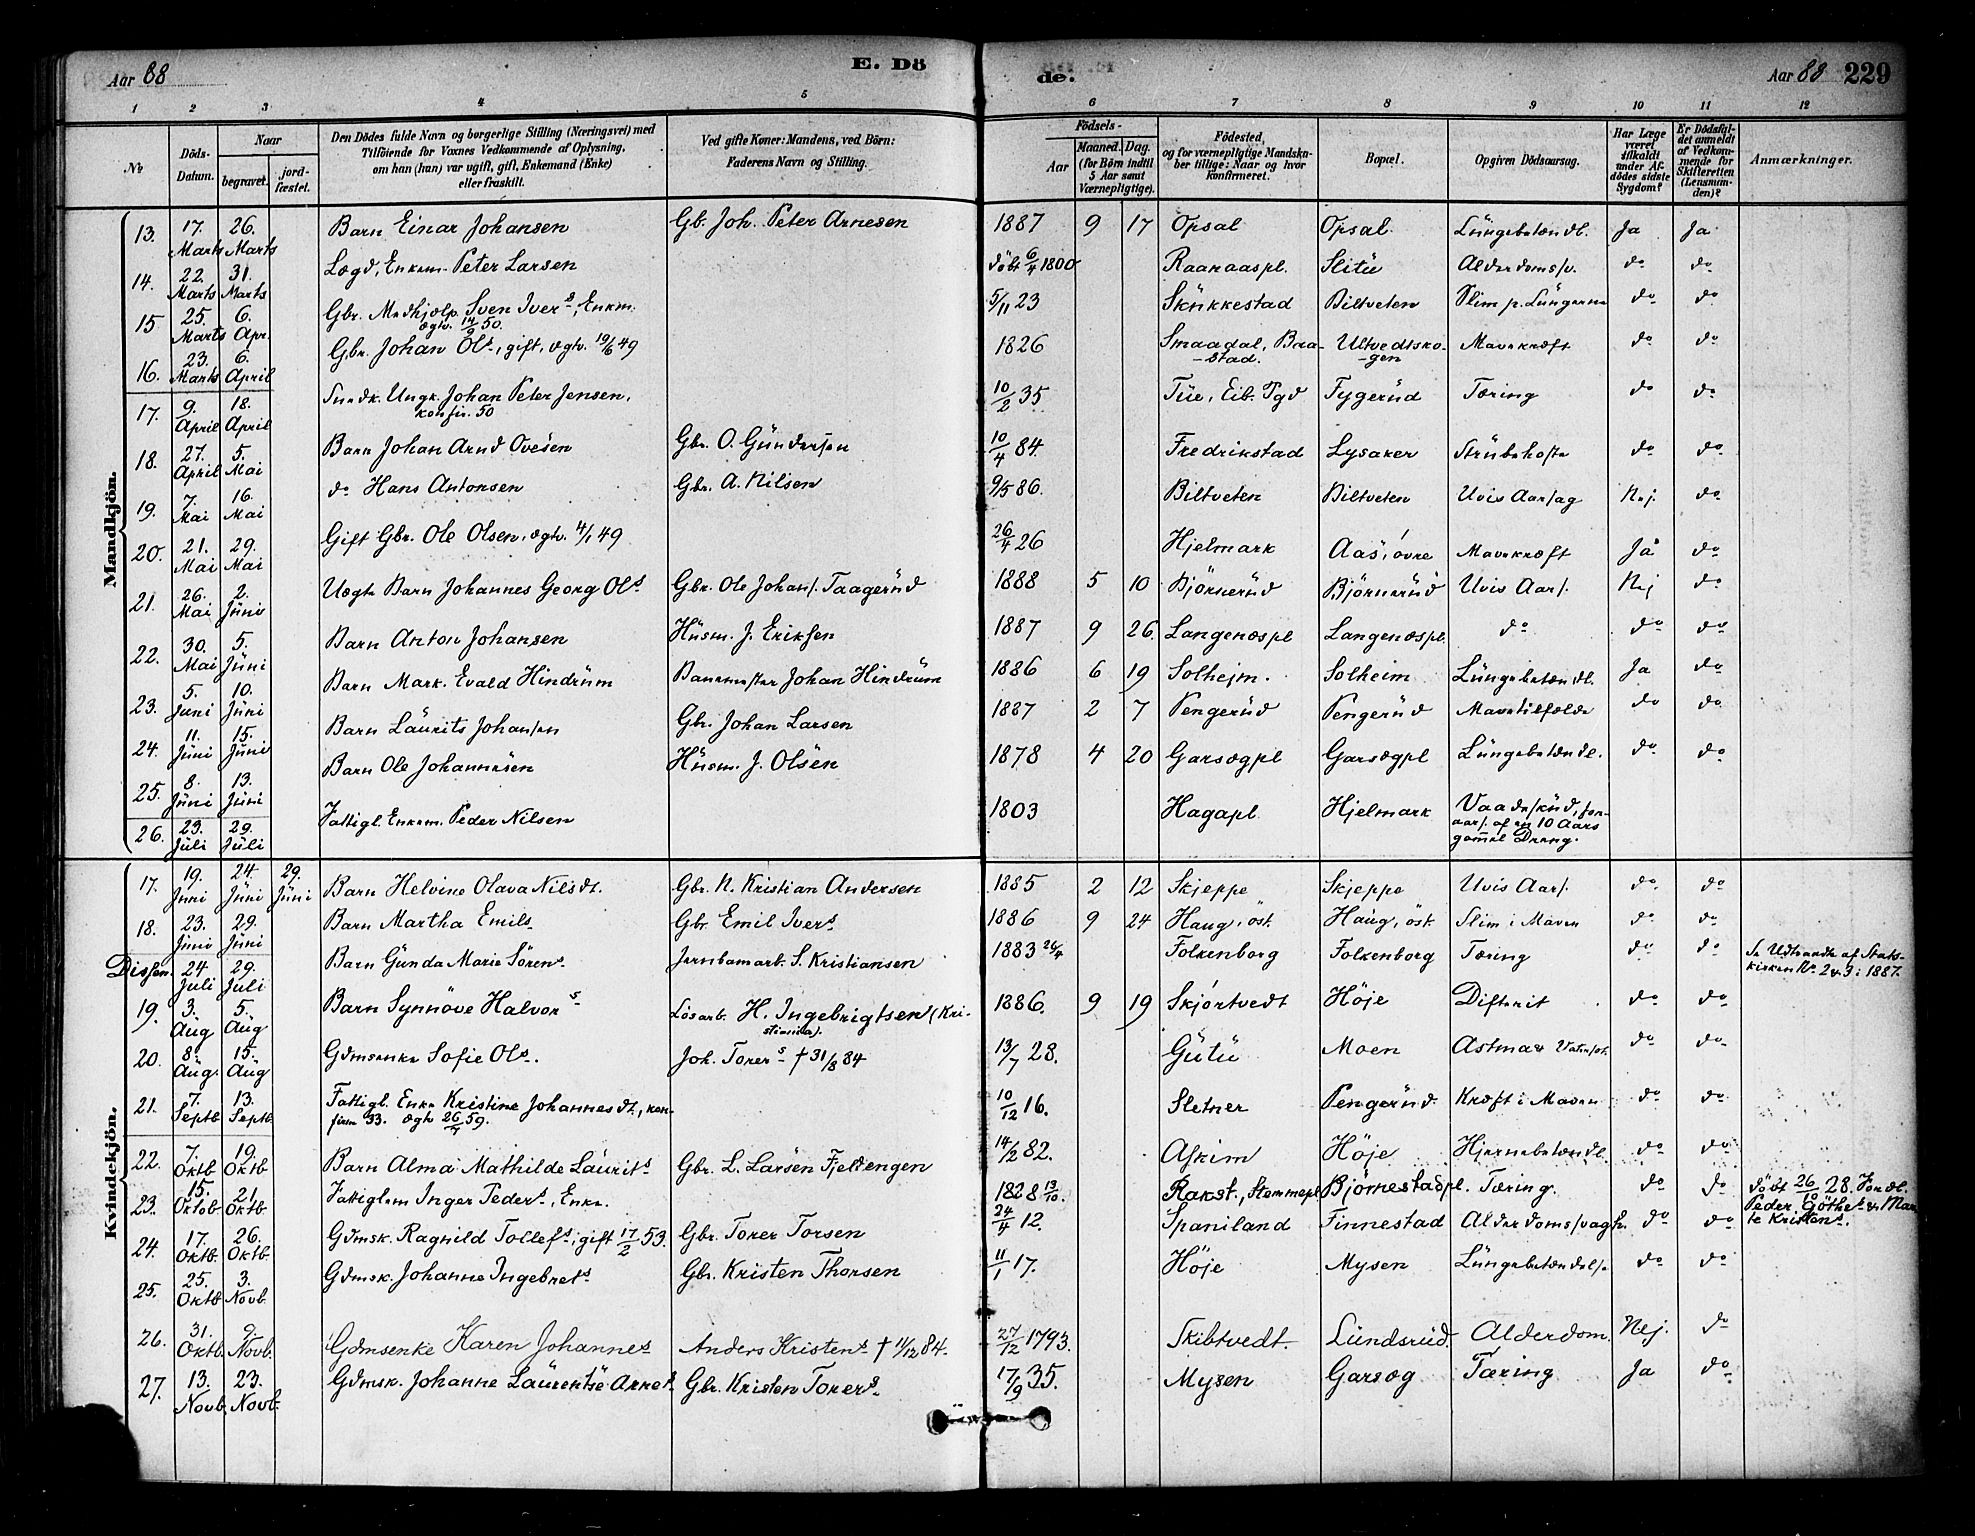 Aar 88
E. Döde.
Aar 88 229
1 2 3 4 5 6 7 8 9 10 11 12
№
Döds-Datum.
Naar
begravet.
jordfæstet.
Den Dödes fulde Navn og borgerlige Stilling (Næringsvei) med
Tilföiende for Voxnes Vedkommende af Oplysning,
om han (hun) var ugift, gift, Enkemand (Enke)
eller fraskilt.
Ved gifte Koner: Mandens, ved Börn:
Faderens Navn og Stilling.
Födsels-
Aar
Maaned. Dag.
(for Börn indtil
5 Aar samt
Værnepligtige).
Födested,
og for værnepligtige Mandskaber tillige: Naar og hvor
konfirmeret.
Bopæl.
Opgiven Dödsaarsag.
Har Læge
været
tilkaldt
under Afdödes sidste
Sygdom?
Er Dödsfaldet anmeldt
af Vedkommende for
Skifteretten
(Lensmanden)?
Anmærkninger.
Mandkjön.
13. 17. Marts 26. Marts Barn Einar Johansen Gb. Joh. Peter Arnesen 1887 9 17 Opsal Opsal Lüngebetændl. Ja Ja
14. 22. Marts 31. Marts Lægd, Enkem. Peter Larsen döbt 6/4 1800 Raanaaspl. Slitü Alderdomssv. do do
15 25. Marts 6. Apr. Gbr. Medhjælp. Sven Ivers, Enkm. ægtv. 14/9 50. 5/11 23 Skükkestad Biltveten Slim p. Lüngerne do do
16. 23. Marts 6. April Gbr. Johan Ols, gift, ægtv. 19/6 49 1826 Smaadal, Baastad. Ultvedtskogen Mavekræft do do
17. 9. April 18. April Sundk. Ungk. Johan Peter Jensen, konfir. 50 10/2 35 Tüe, Eib. Pgd Fygerüd Tæring do do
18. 27. April 5. Mai Barn Johan Arnd Ovesen Gbr. O. Gündersen 10/4 84. Fredrikstad Lysaker Strübehoste do do
19. 7. Mai 16. Mai do Hans Antonsen Gbr. A. Nilsen 9/5 86. Biltveten Biltveten Uvis Aarsag Nej. do
20. 21. Mai 29. Mai Gift Gbr. Ole Olsen, ægtv. 4/1 49 26/4 26 Hjelmark Aas, övre Mavekræft Ja do
21. 26. Mai 2. Jüni Uægte Barn Johannes Georg Ols Gbr. Ole Johans. Taagerüd 1888 5 10 Björnerüd Björnerüd Uvis Aars. Nej do
22. 30. Mai 5. Jüni Barn Anton Johansen Hüsm. J. Eriksen 1887 9 26 Langenæspl Langenæspl. do do do
23. 5. Juni 10. Jüni Barn Mark. Evald Hindrüm Banemester Johan Hindrüm 1886 6 19 Solheim. Solheim Lüngebetændl. Ja do
24. 11. Jüni 15. Jüni Barn Läurits Johansen Gbr. Johan Larsen 1887 2 7 Pengerüd Pengerüd Mavetilfælde do do
25. 8. Jüni 13. Jüni Barn Ole Johannesen Hüsm. J. Olsen 1878 4 20 Garsægpl Garsægpl Lüngebetændl. do do
26. 23. Jüli 29. Jüli Fattigl. Enkem. Peder Nilsen 1803 Hagapl. Hjelmark Vaadeskud, foraars. af en 10 Aars gammel Dreng.
Kvindekjön.
17. 19. Juni 24. Jüni 29. Jüni Barn Helvine Olava Nilsdt. Gbr. N. Kristian Andersen 1885 2 12 Skjeppe Skjeppe Uvis Aars. do do
18. 23. Jüni 29. Jüni Barn Martha Emils Gbr. Emil Ivers 1886 9 24 Haug, öst. Haug, öst. Slim i Maven do do
Dissen. 24 Juli 29. Juli Barn Günda Marie Sörens Jernbanearb. S. Kristiansen 1883 26/4 Folkenborg Folkenborg Tæring do do Se Udtraadte af Statskirken No. 2 & 3 i 1887.
19. 3. Aüg 5. Aüg Barn Synnöve Halvors Lösarb. H. Ingebrigtsen (Kristiania). 1886. 9 19 Skjörtvedt Höje Difterit do do
20. 8. Aüg. 15. Aüg Gdmsenke Sofie Ols. Joh. Torers † 31/8 84 13/7 28. Gütü Moen Astma & Vatersot. do do
21. 7. Septb 13. Septb. Fattigl. Enke Kristine Johannesdt., konfirm 33. ægtv 26/7 59. 10/12 16. Sletner Pengerüd. Kræft i Maven do do
22. 7. Oktb 19. Oktb Barn Alma Mathilde Laurits Gbr. L. Larsen Fjeldengen 14/2 82. Askim Höje Hjernebetændl. do do
23. 15. Oktob 21. Oktb. Fattiglem Inger Peders, Enke. 1828 13/10. Rakst., Stemmepl Björnestadpl. Tæring. do do döbt 26/10 28. Foræl. Peder Göthes & Marte Kristens.
24. 17. Oktb. 26. Oktb. Gdmsk. Ragnild Tollefs, gift 17/2 53. Gbr. Torer Torsen 24/4 12. Spaniland Finnestad Alderdomssvagh. do do
25. 25. Oktb 3. Novb. Gdmsk. Johanne Ingebrets Gbr. Kristen Thorsen 11/1 17. Höje Mysen Lüngebetændelse do do
26. 31. Oktb. 9. Novb. Gdmsenke Karen Johannes Anders Kristens † 11/12 84. 27/12 1793. Skibtvedt. Lündsrüd. Alderdom. Nej. do
27. 13. Novb. 23. Novb. Gdmsk. Johanne Läurentse Arnes Gbr. Kristen Torers 17/9 35. Mysen Garsæg Tæring Ja do